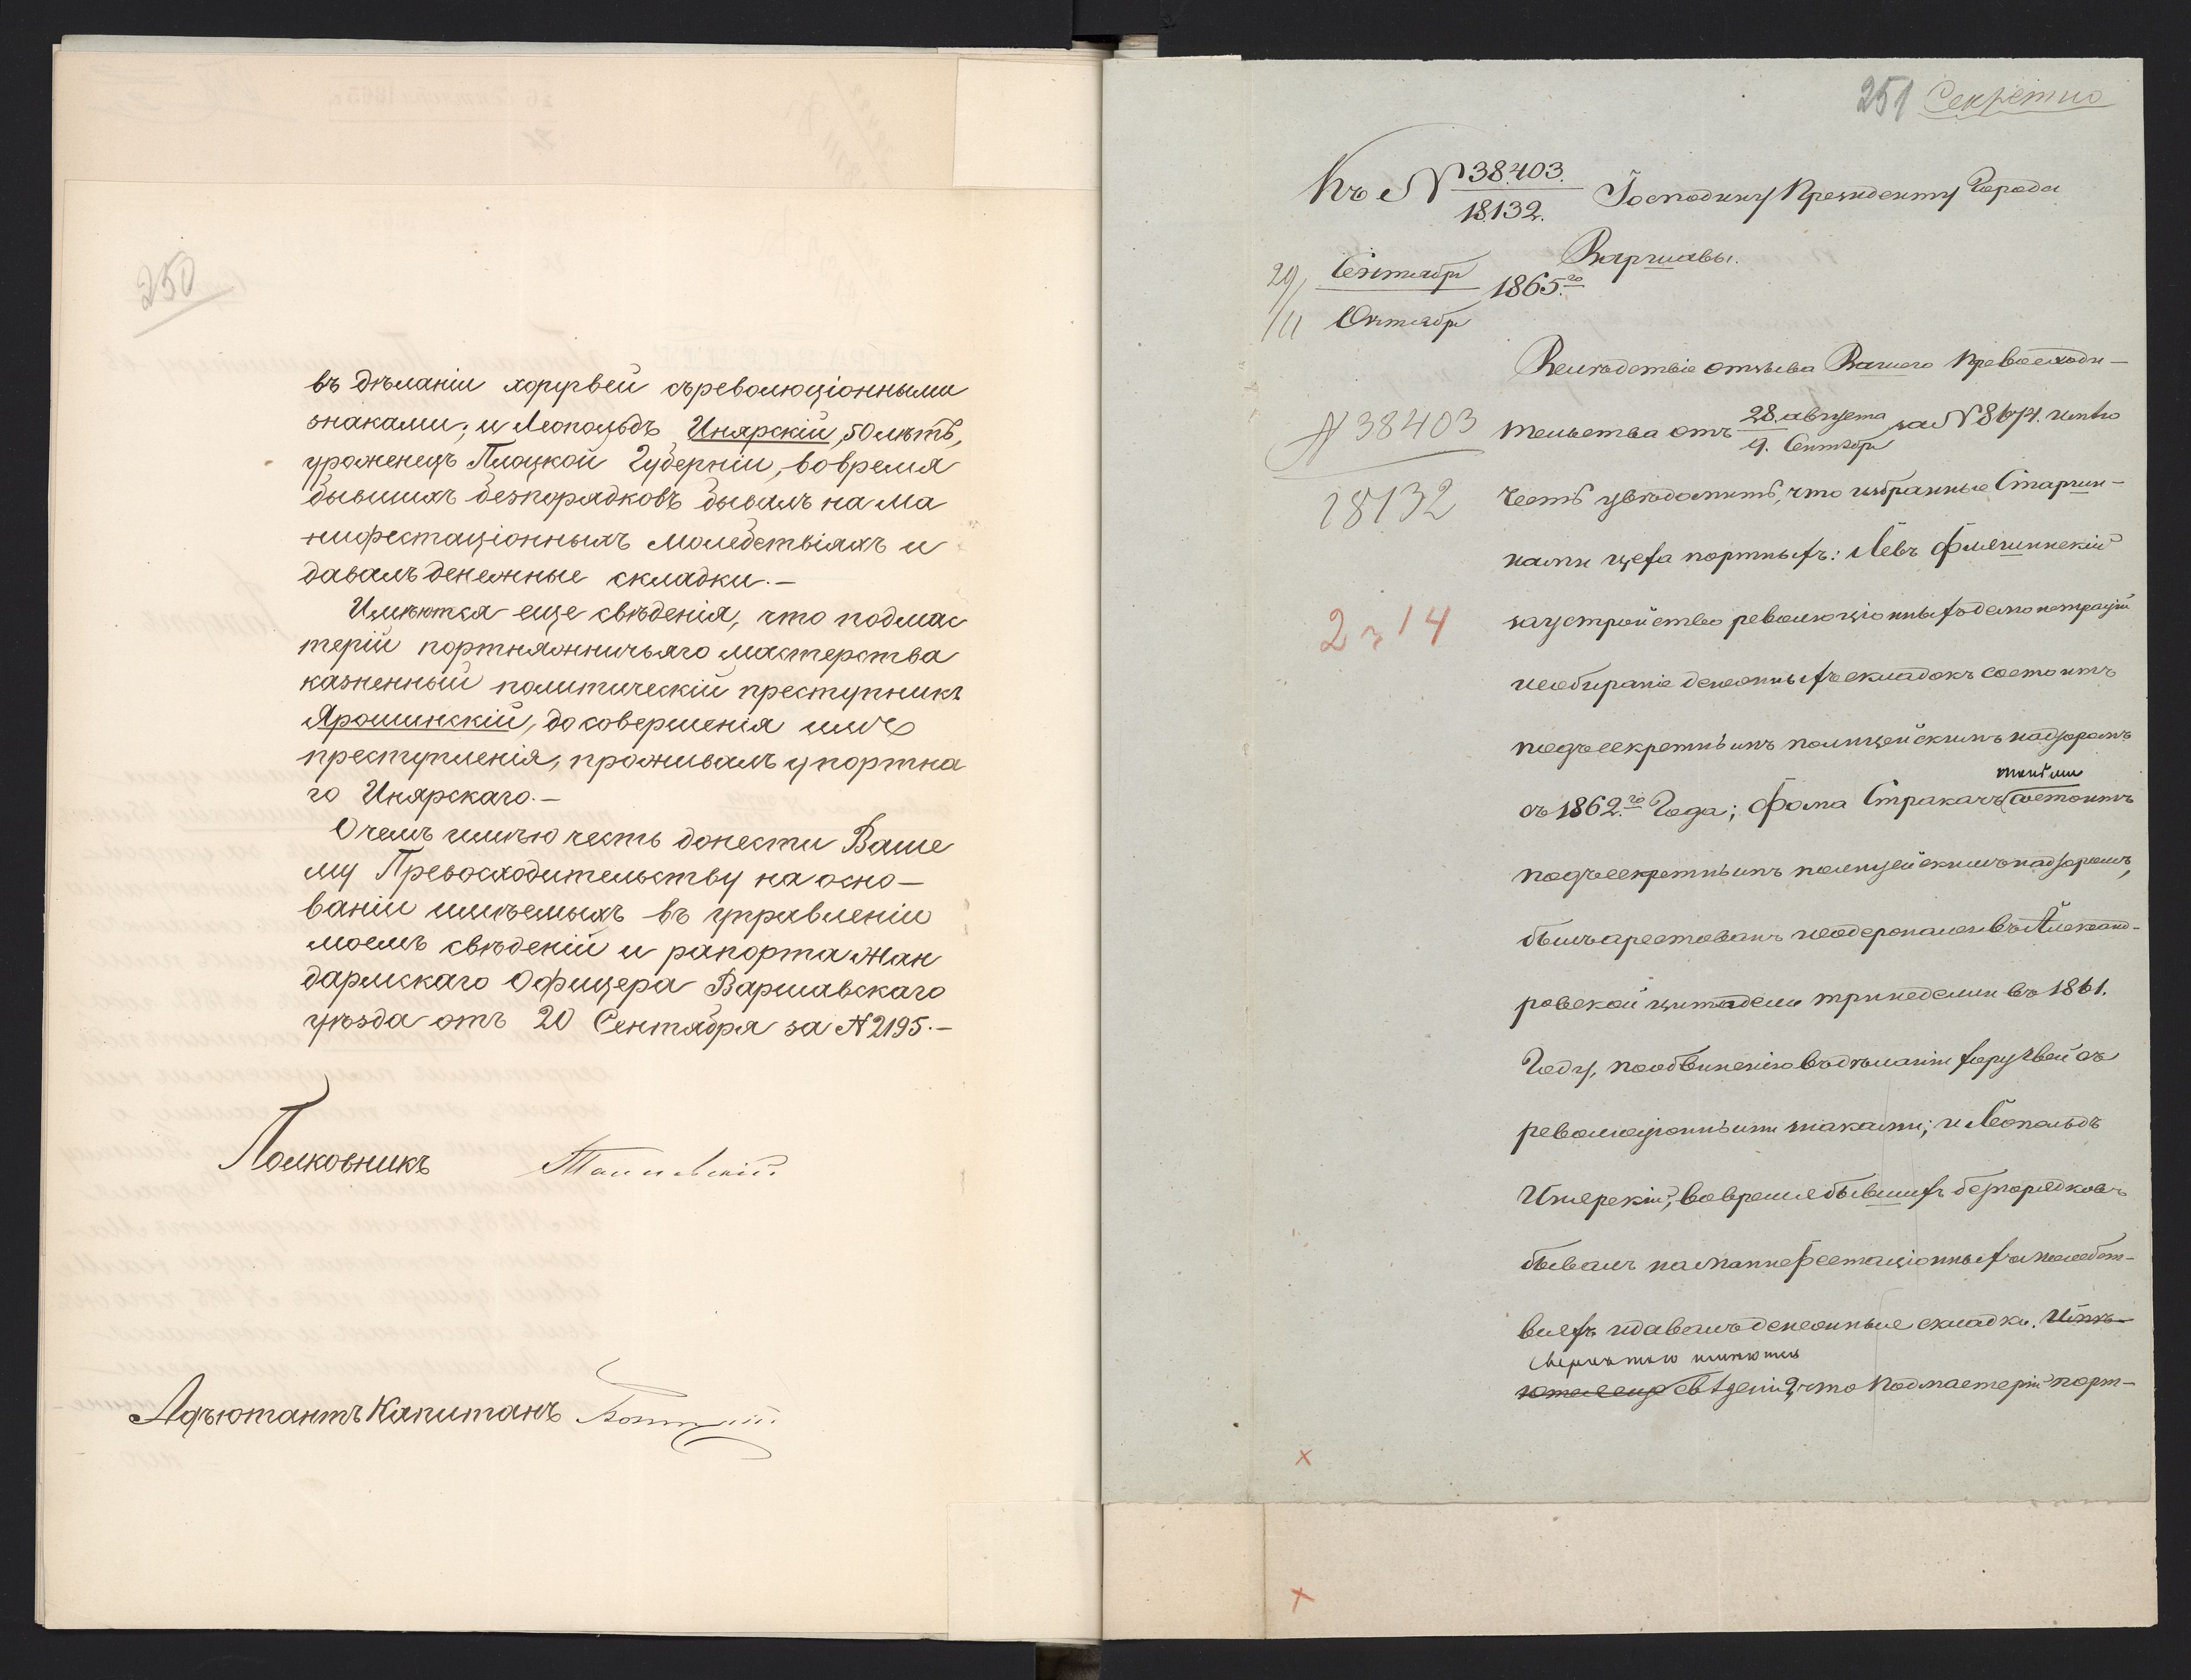 250
въ дѣланіи хоругвей съреволюціонными
знаками; и Леопольдъ Инярскій, 50 лѣтъ,
уроженецъ Плоцкой Губерніи, вовремя
бывшихъ безпорядковъ бывалъ на ма
нифестаціонныхъ молебствіяхъ и
давалъ денежные складки.—
Имѣются еще свѣденія, что подмас
терій портняжничьяго мастерства
казненный политическій преступникъ
Ярошинскій, до совершенія имъ
преступленія, проживалъ у портна
го Инярскаго.—
О чемъ имѣю честь донести Ваше
му Превосходительству на осно—
ваніи имѣемыхъ въ управленіи
моемъ свѣденій и рапорта Жан
дармскаго Офицера Варшавскаго
уѣзда отъ 20 Сентября за № 2195.—
Полковникъ
Адъютантъ Капитанъ
251 Секретно
Къ № 38.403. / 18.132. Господину Президенту Города
Варшавы.
29/11 Сентября / Октября 1865.го
Вслѣдствіе отзыва Вашего Превосходи—
№ 38403 тельства отъ 28. августа / 9. Сентября за № 8674. имѣю
18132 честь увѣдомить, что избранные Старшин—
нами цеха портныхъ: Левъ
2 14 за устройство революціонныхъ демонстрацій
и собираніе денежныхъ складокъ состоитъ
подъ секретнымъ полицейскимъ надзоромъ
съ 1862.го Года; Фома Стракачъ также состоитъ
подъ секретнымъ полицейскимъ надзоромъ,
былъ арестованъ и содержался въ Александ-
ровской цитадели три недели въ 1861.
Году, по обвиненію въ дѣланіи хоругвей съ
революціонными знаками; и Леопольдъ
Инярскій, во время бывшихъ безпорядковъ
бывалъ на манифестаціонныхъ молебст—
віяхъ и давалъ денежные складки. Имѣ—
Сверхъ того имѣются
ются еще свѣденія, что подмастерій порт—